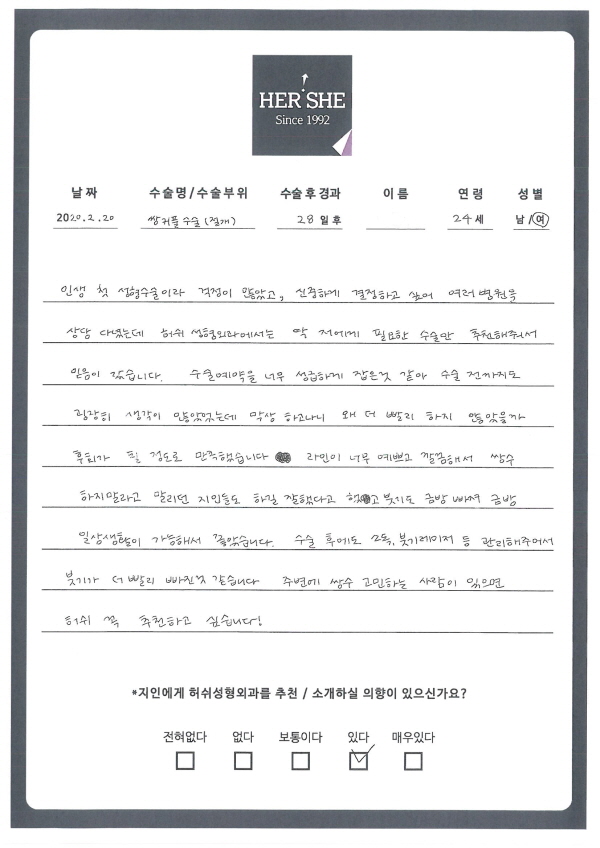 HER SHE
Since 1992
날짜 수술명/수술부위 수술후경과 이름 연령 성별
2020.2.20 쌍커풀수술(절개) 28일후 24세 남/여
인생 첫 성형수술이라 걱정이 많았고, 신중하게 결정하고 싶어 여러병원을
상담 다녔는데 허쉬 성형외과에서는 딱 저에게 필요한 수술만 추천해줘서
믿음이 갔습니다. 수술예약을 너무 성급하게 잡은것 같아 수술 전까지도
굉장히 생각이 많았었는데 막상 하고나니 왜 더 빨리 하지 않았을까
후회가 될 정도로 만족했습니다 라인이 너무 예쁘고 깔끔해서 쌍수
하지말라고 말리던 지인들도 하길 잘했다고 했고 붓기도 금방 빠져 금방
일상생활이 가능해서 좋았습니다. 수술 후에도 소독, 붓기레이저 등 관리해주어서
붓기가 더 빨리 빠진것 같습니다 주변에 쌍수 고민하는 사람이 있으면
허쉬 꼭 추천하고 싶습니다!
*지인에게 허쉬성형외과를 추천 / 소개하실 의향이 있으신가요?
전혀없다 없다 보통이다 있다 매우있다